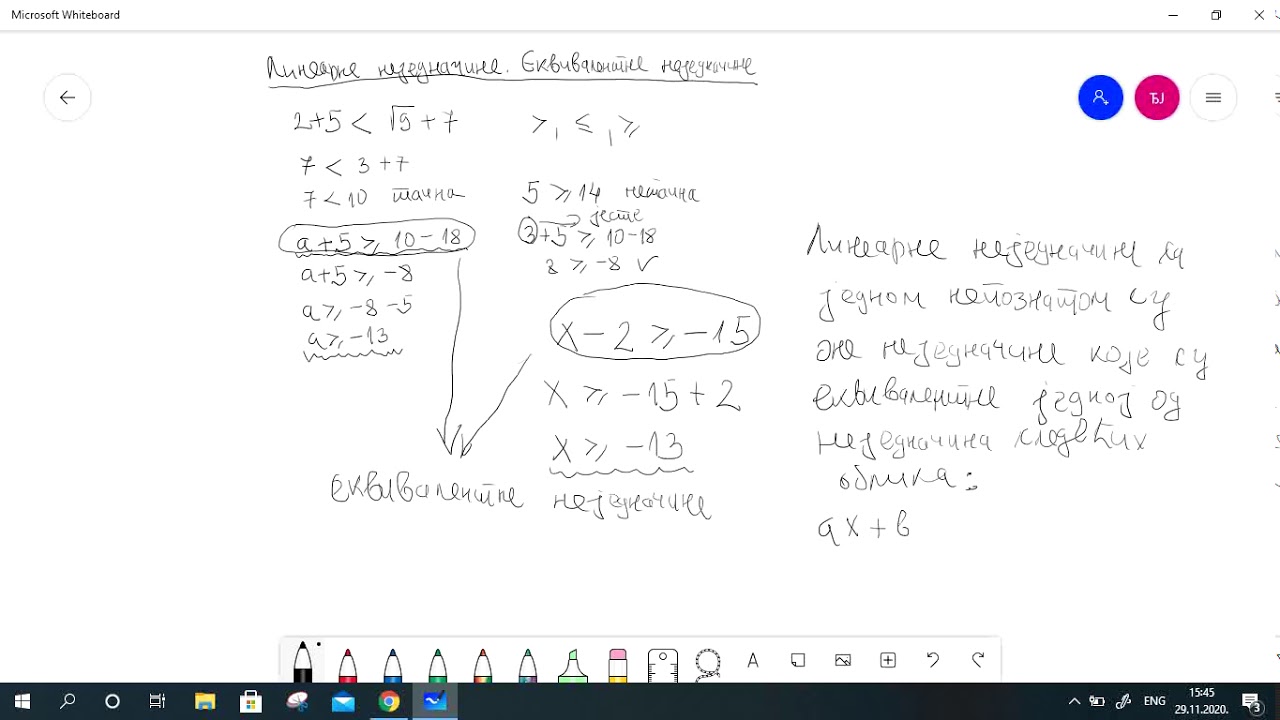 Microsoft Whiteboard
Линеарне неједначине. Еквивалентне неједначине
2+5 < √9 + 7
>, ≤, ≥
7 < 3 + 7
7 < 10 тачна
5 ≥ 14 нетачна
a+5 ≥ 10-18
јесте
3+5 ≥ 10-18
a+5 ≥ -8
8 ≥ -8 ✓
a ≥ -8 -5
a ≥ -13
x - 2 ≥ -15
x ≥ -15 + 2
x ≥ -13
еквивалентне неједначине
Линеарне неједначине са
једном непознатом су
оне неједначине које су
еквивалентне једној од
неједначина следећих
облика:
ax + b
ЂЈ
A
ENG
15:45
29.11.2020.
3